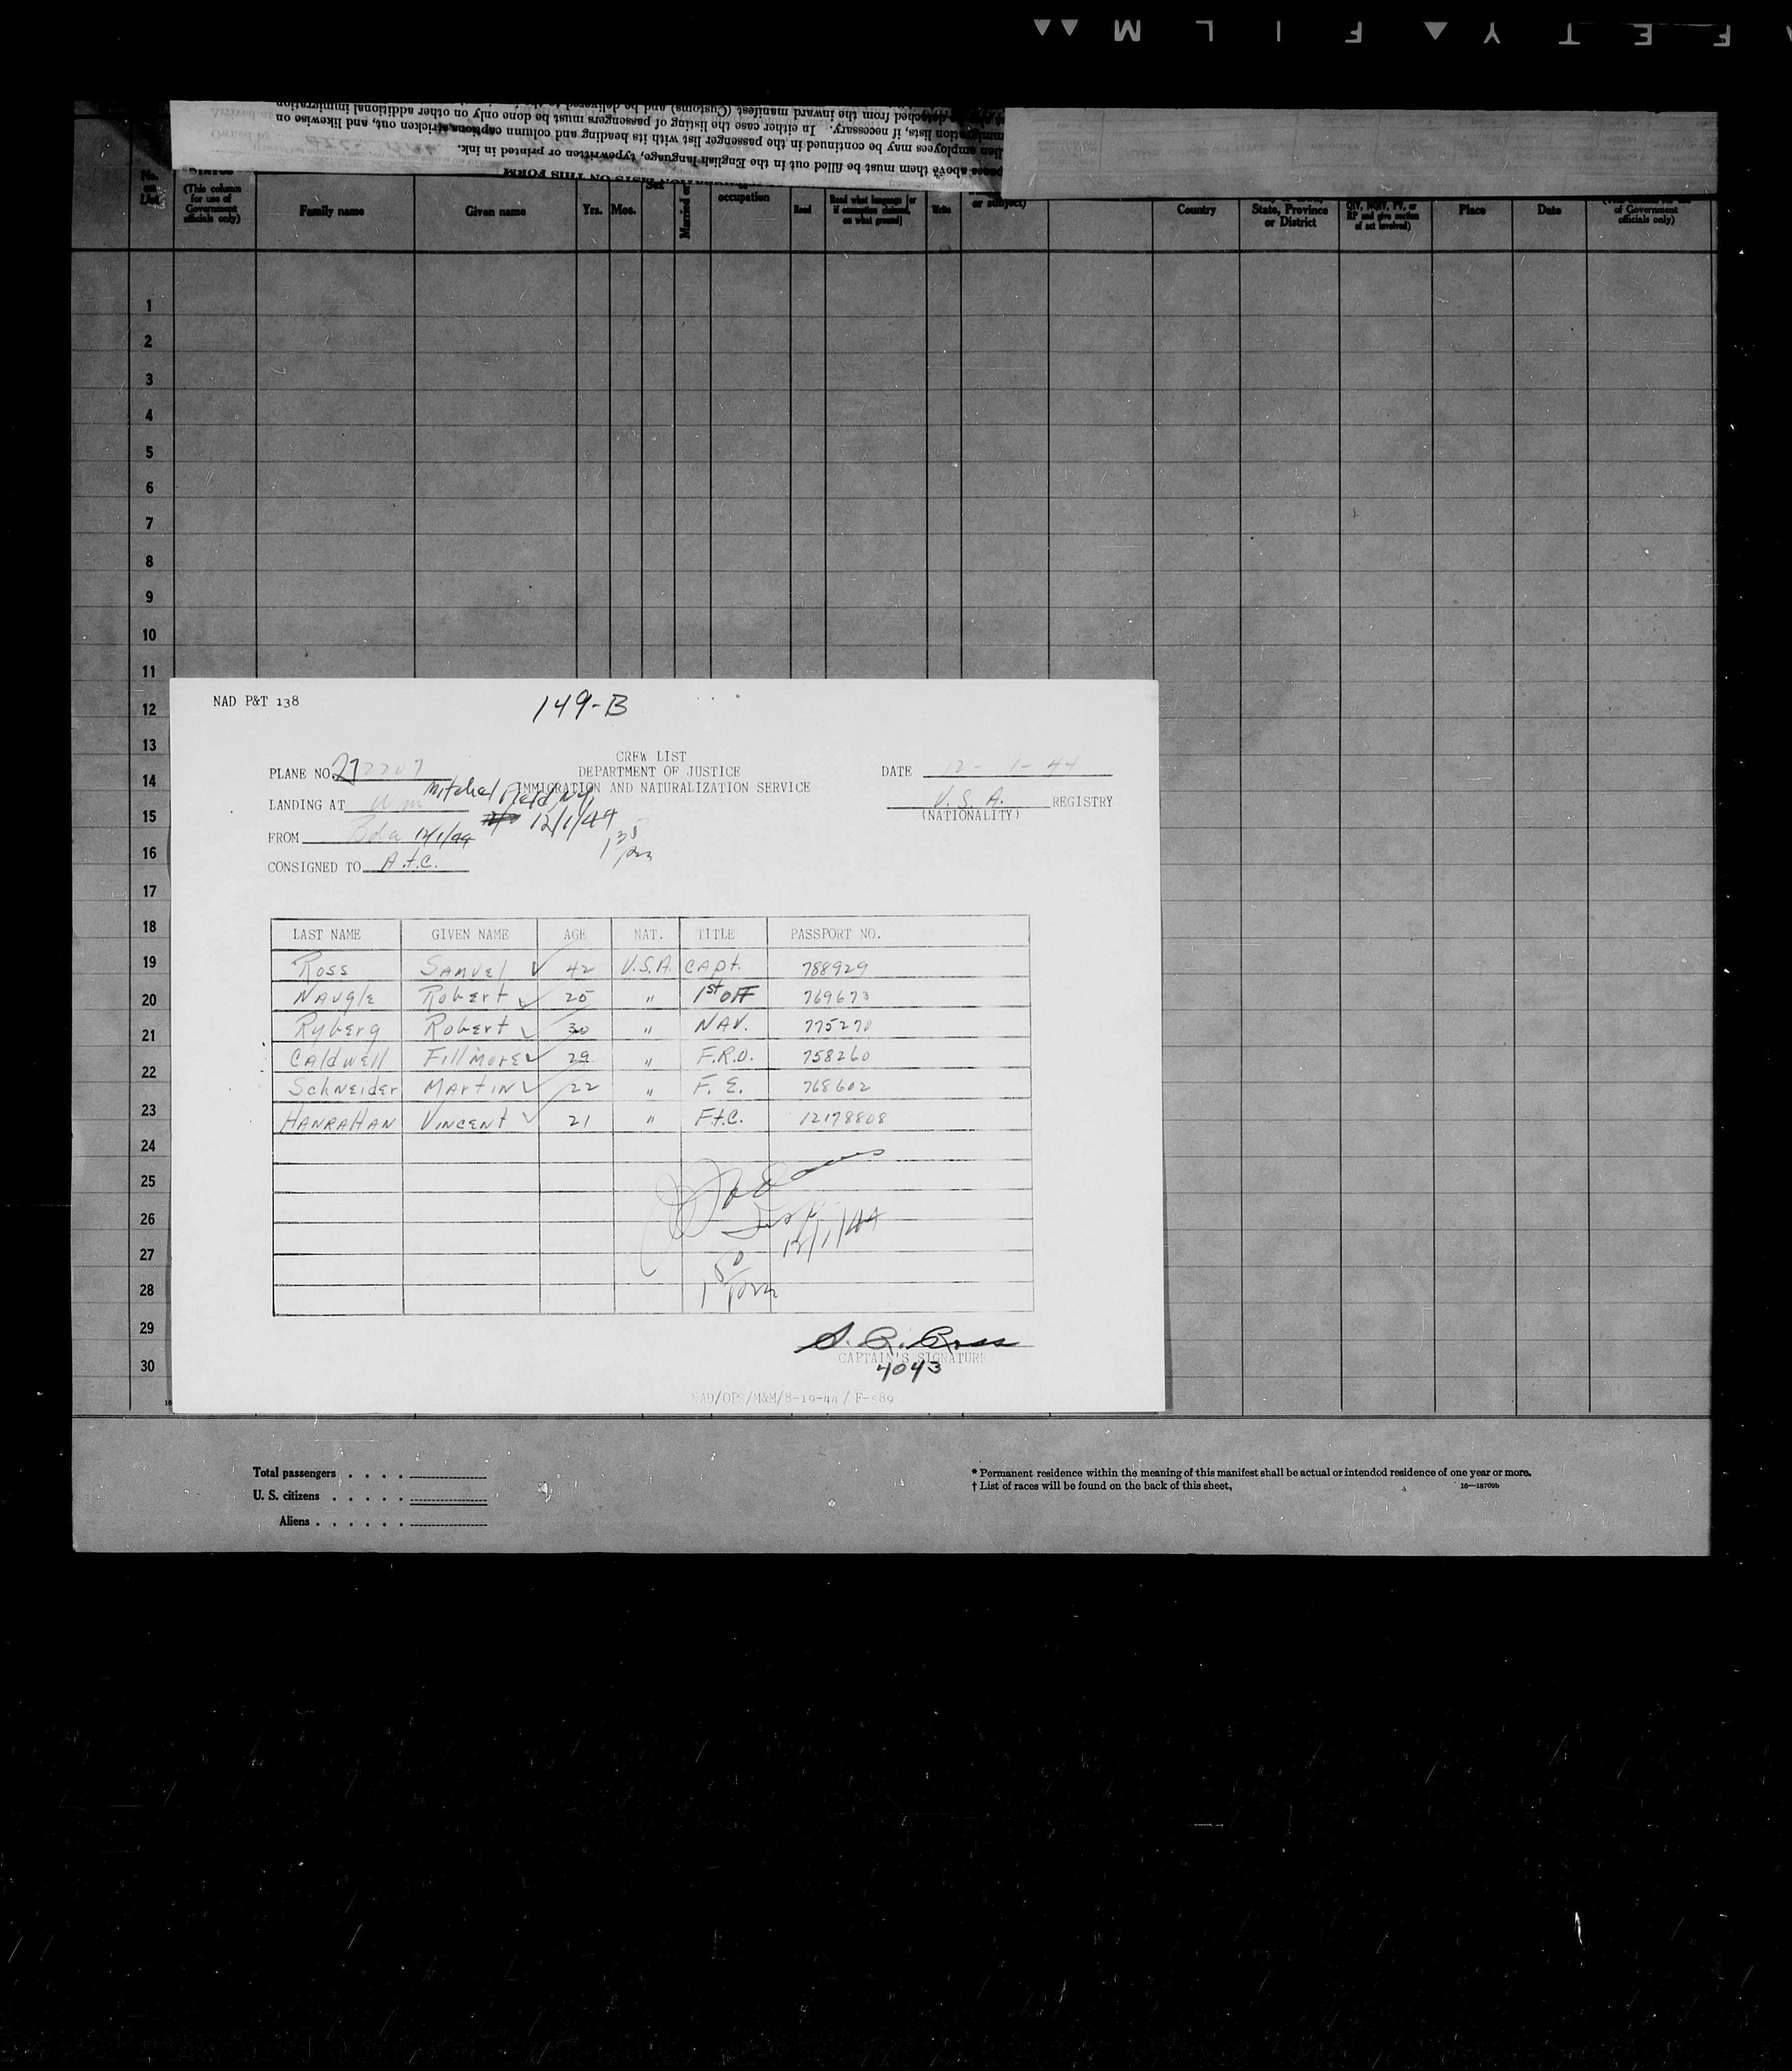 M L I F ▲ Y T E F
detached from the inward manifest (Customs) and be delivered to the
immigration lists, if necessary. In either case the listing of passengers must be done only on other additional immigration
alien employees may be continued in the passenger list with its heading and column captions stricken out, and likewise on
spaces above them must be filled out in the English language, typewritten or printed in ink.
LISTS ON THIS FORM
No. on List
(This column for use of Government officials only)
Family name
Given name
Yrs. Mos.
Sex
Married or
occupation
Read
Read what language [or if exemption claimed, on what ground]
Write
or subject)
Country
State, Province or District
QIV, NQIV, PV, or RP and give section of act involved)
Place
Date
of Government officials only)
1
2
3
4
5
6
7
8
9
10
11
12
13
14
15
16
17
18
19
20
21
22
23
24
25
26
27
28
29
30
NAD P&T 138
149-B
CREW LIST
DEPARTMENT OF JUSTICE
IMMIGRATION AND NATURALIZATION SERVICE
PLANE NO. 272207
DATE 12-1-44
LANDING AT Wm Mitchel Field, N.Y.
U.S.A. REGISTRY
(NATIONALITY)
12/1/44
FROM Bda 12/1/44
1 35 pm
CONSIGNED TO A.t.C.
LAST NAME GIVEN NAME AGE NAT. TITLE PASSPORT NO.
Ross Samuel 42 U.S.A. Capt. 788929
Naugle Robert 25 " 1st Off 769673
Ryberg Robert 30 " NAV. 775270
Caldwell Fillmore 29 " F.R.O. 758260
Schneider Martin 22 " F. E. 768602
Hanrahan Vincent 21 " F.t.C. 12178808
12/1/44
1 50 pm
S. R. Ross
CAPTAIN'S SIGNATURE
4043
NAD/OPS/M&M/8-19-44 / F-589
Total passengers . . . .
U. S. citizens . . . . .
Aliens . . . . . .
* Permanent residence within the meaning of this manifest shall be actual or intended residence of one year or more.
† List of races will be found on the back of this sheet.
16—18709b